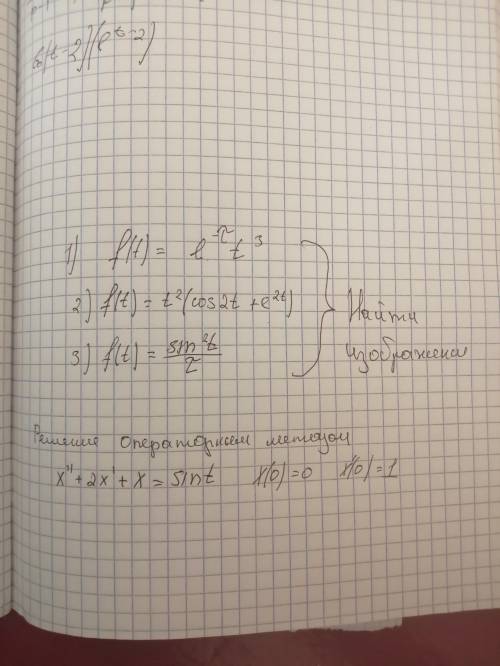 1) f(t) = e^-τ t^3
2) f(t) = t^2 (cos2t + e^2t)
3) f(t) = sin^2t / τ
Найти
изображения
Решение операторным методом
x'' + 2x' + x = sint x(0) = 0 x'(0) = 1